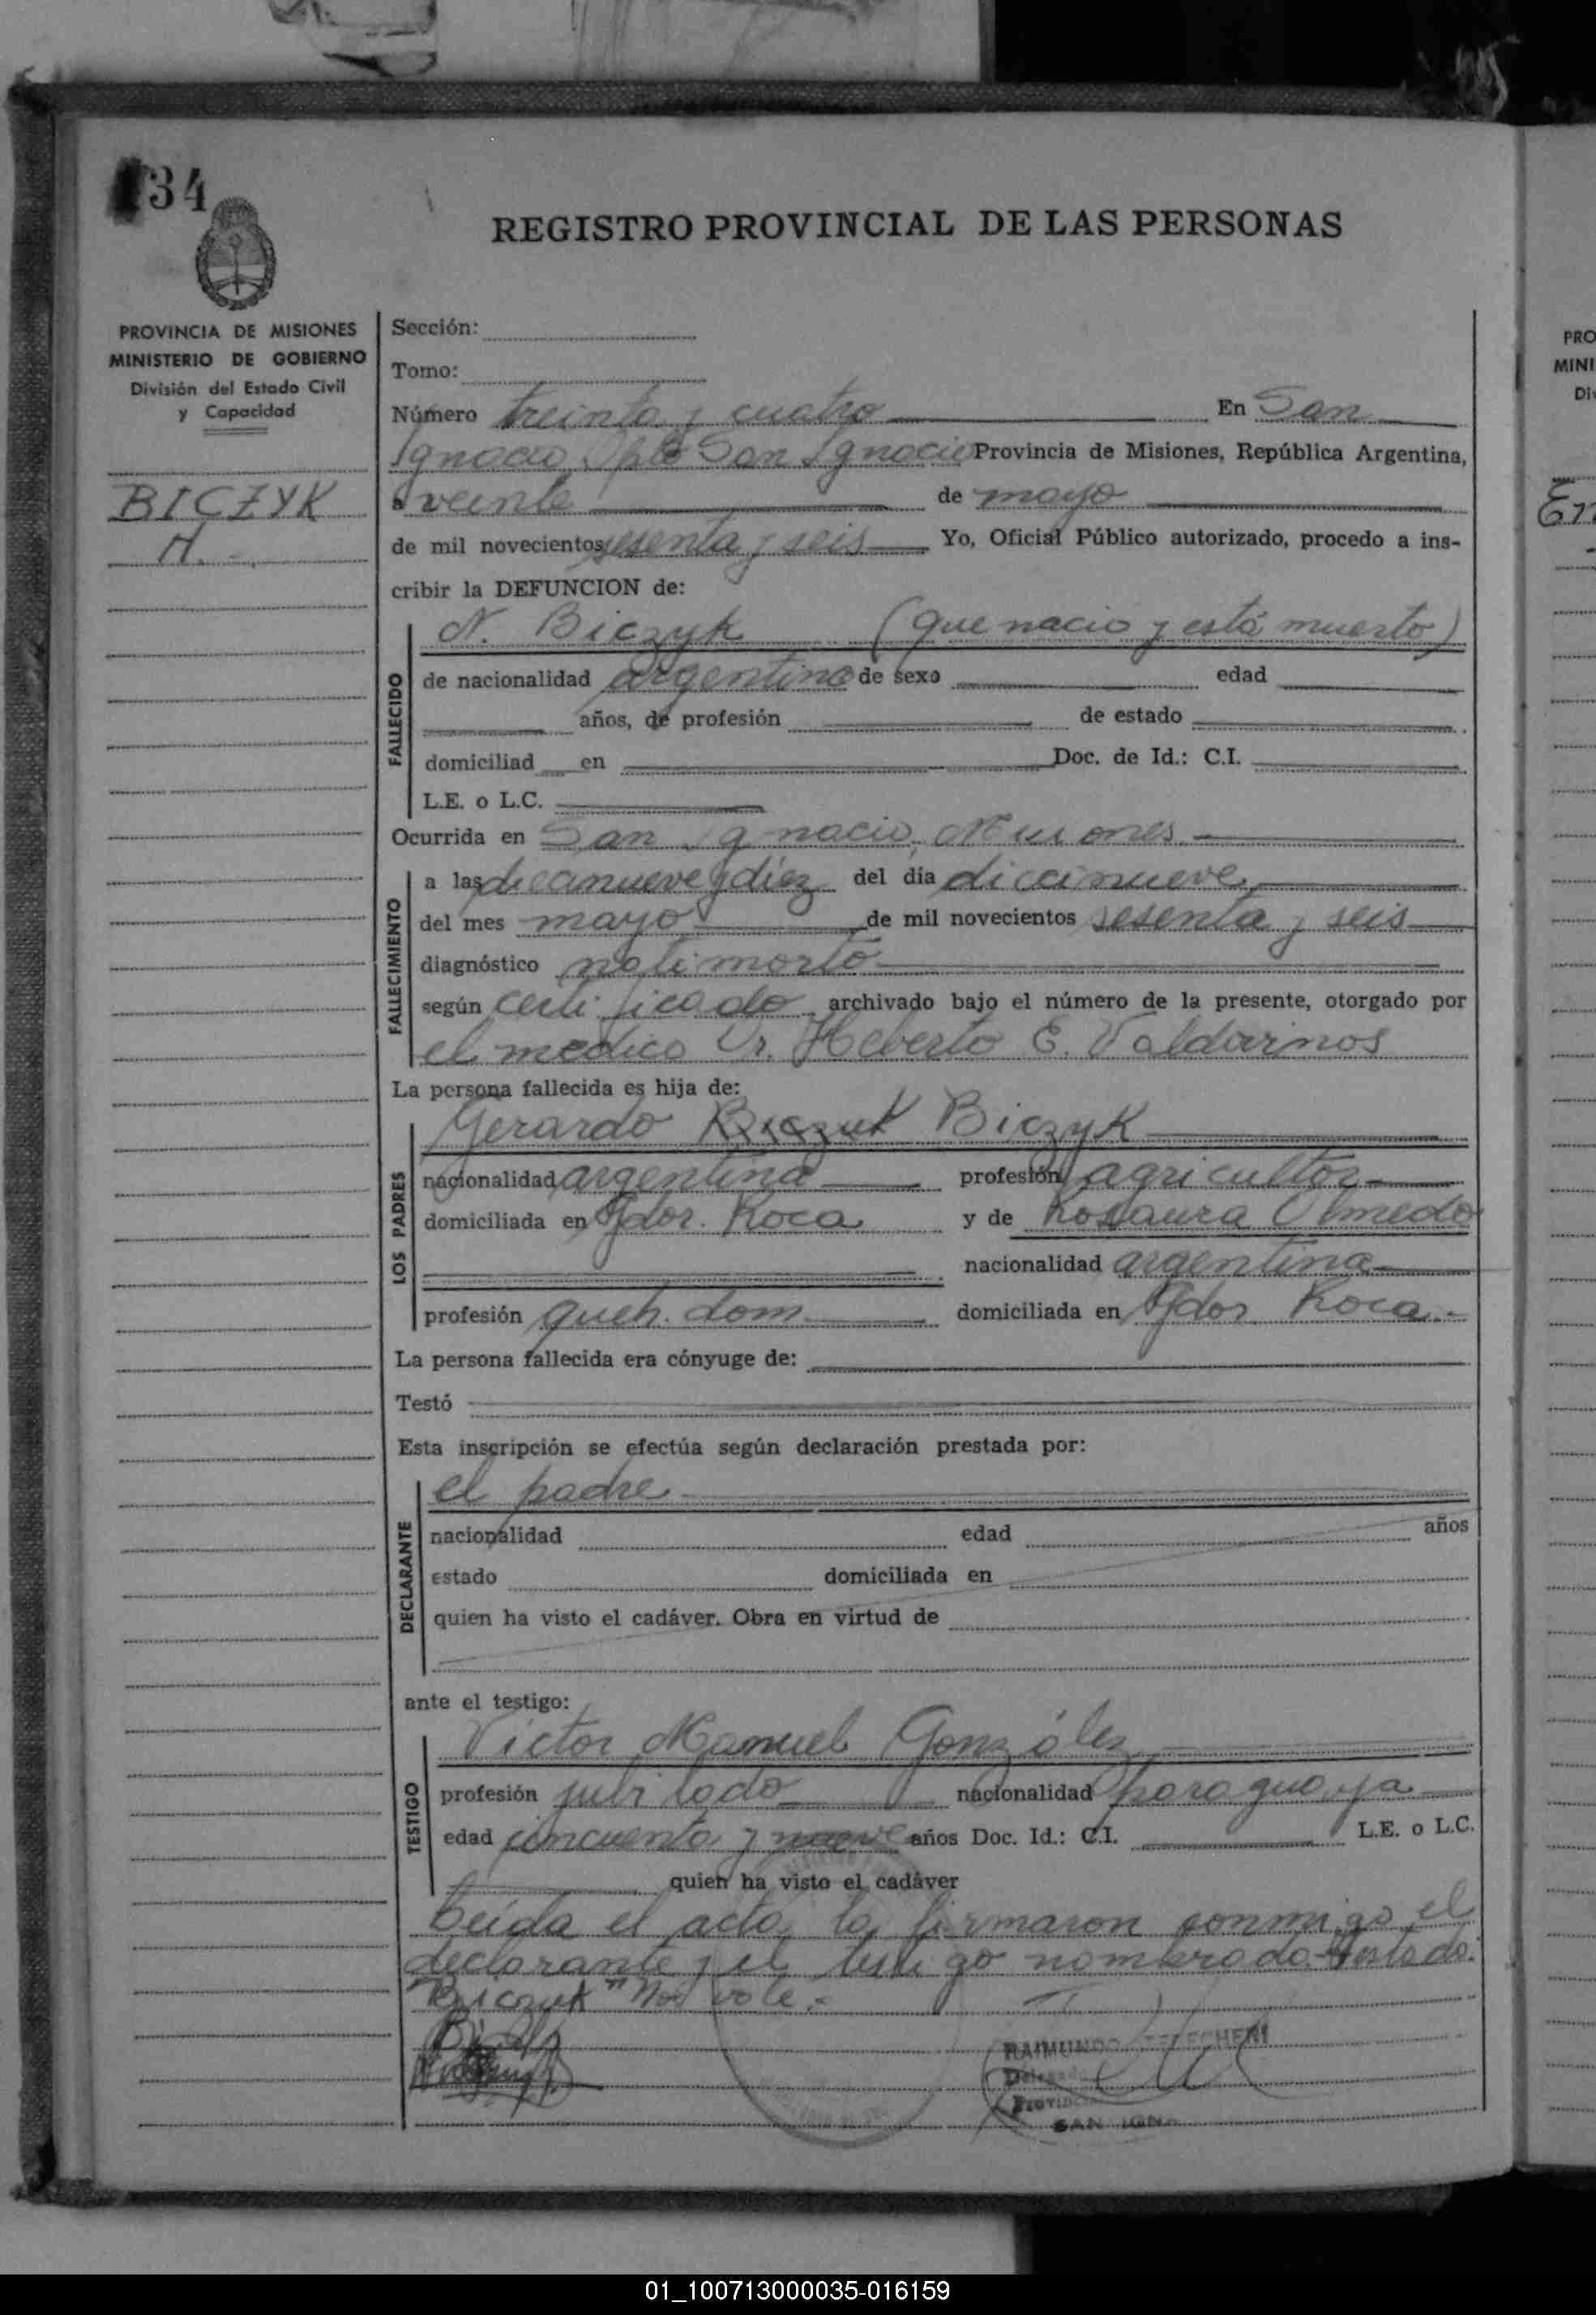 34
REGISTRO PROVINCIAL DE LAS PERSONAS
PROVINCIA DE MISIONES
MINISTERIO DE GOBIERNO
División del Estado Civil
y Capacidad
BICZYK
Sección:
Tomo:
Número treinta y cuatro En San
Ignacio Dpto San Ignacio Provincia de Misiones, República Argentina,
a veinte de mayo
de mil novecientos sesenta y seis Yo, Oficial Público autorizado, procedo a ins-
cribir la DEFUNCION de:
N. Biczyk (que nacio y está muerto)
FALLECIDO
de nacionalidad argentina de sexo edad
años, de profesión de estado
domiciliad en Doc. de Id.: C.I.
L.E. o L.C.
Ocurrida en San Ignacio, Misiones
FALLECIMIENTO
a las diecinueve y diez del día diecinueve
del mes mayo de mil novecientos sesenta y seis
diagnóstico natimorto
según certificado archivado bajo el número de la presente, otorgado por
el medico Dr. Heberto E. Valdarinos
La persona fallecida es hija de:
Gerardo Biczyk
LOS PADRES
nacionalidad argentina profesión agricultor
domiciliada en Gdor. Roca y de Rosaura Olmedo
nacionalidad argentina
profesión queh. dom domiciliada en Gdor Roca.-
La persona fallecida era cónyuge de:
Testó
Esta inscripción se efectúa según declaración prestada por:
el padre
DECLARANTE
nacionalidad edad años
estado domiciliada en
quien ha visto el cadáver. Obra en virtud de
ante el testigo:
Victor Manuel González
TESTIGO
profesión jubilado nacionalidad paraguaya
edad cincuenta y nueve años Doc. Id.: C.I. L.E. o L.C.
quien ha visto el cadáver
Leída el acta, la firmaron conmigo el
declarante y el testigo nombrado. Testado:
"Biczuk" No vale.-
RAIMUNDO
SAN IGNA
PRO
MINI
Div
01_100713000035-016159